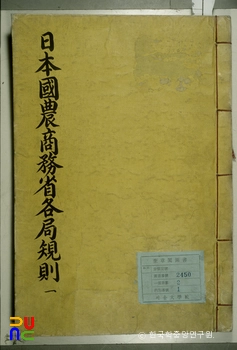 日本國農商務省各局規則 一
2450
2
1
ⓒ 한국학중앙연구원